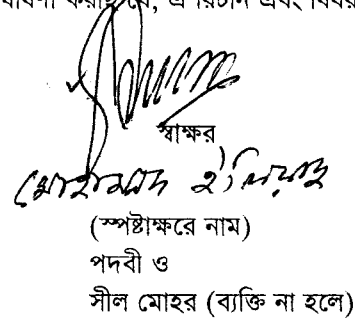 ঘোষণা করছি যে, এ রিটার্ন এবং বিবর
স্বাক্ষর
মোহাম্মদ ইলিয়াছ
(স্পষ্টাক্ষরে নাম)
পদবী ও
সীল মোহর (ব্যক্তি না হলে)